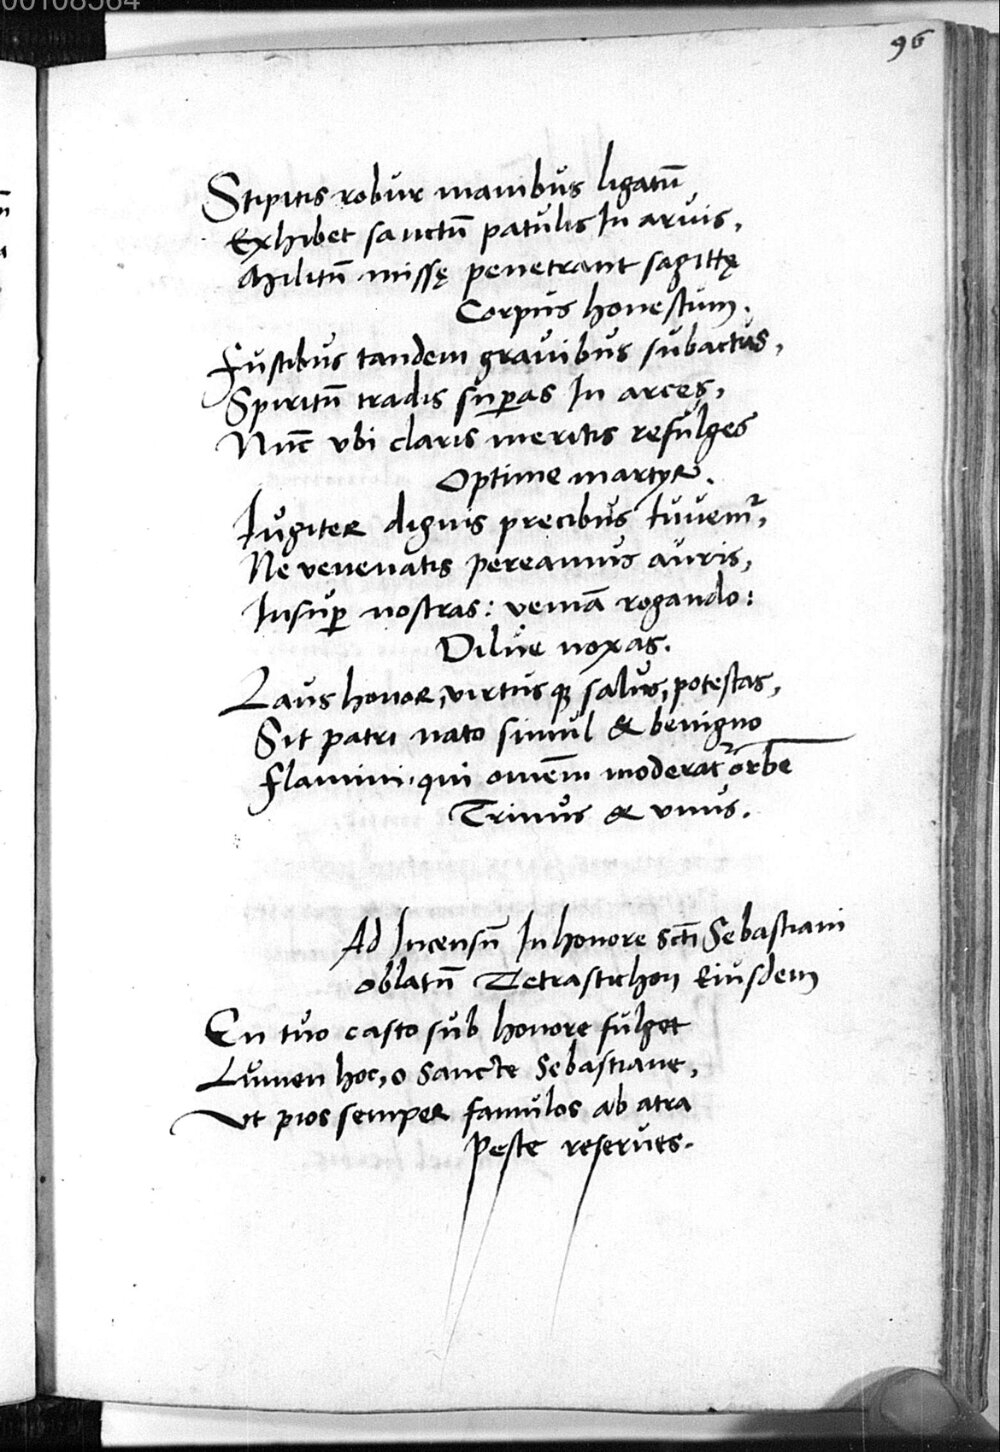 00108564
96
Stipitis robur manibus ligatū,
Exhibet sanctū patulis In arvis,
Militū missę penetrant sagittę
Corpus honestum.
Fustibus tandem gravibus subactus,
Spiritū tradis suꝑas In arces,
Nūc vbi claris meritis refulges
Optime martyr.
Iugiter dignis precibus Iuvemur,
Ne venenatis pereamus auris,
Insuꝑ nostras: veniā rogando:
Dilue noxas.
Laus honor, virtus qꝫ salus, potestas,
Sit patri nato simul & benigno
flamini, qui omēm moderat᷑ orbē
Trinus & vnus.
Ad Incensū In honore Scti Sebastiani
oblatū Tetrastichon Eiusdem
En tuo casto sub honore fulget
Lumen hoc, o Sancte Sebastiane,
Vt pios semper famulos ab atra
Peste reserves.